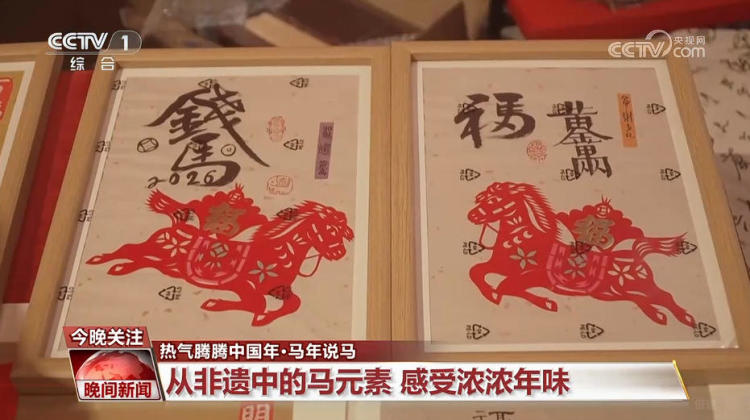 CCTV 1
综合
央视网
CCTV.com
錢馬
2026
福
福
黄金萬兩
福
今晚关注
热气腾腾中国年·马年说马
晚间新闻
从非遗中的马元素 感受浓浓年味